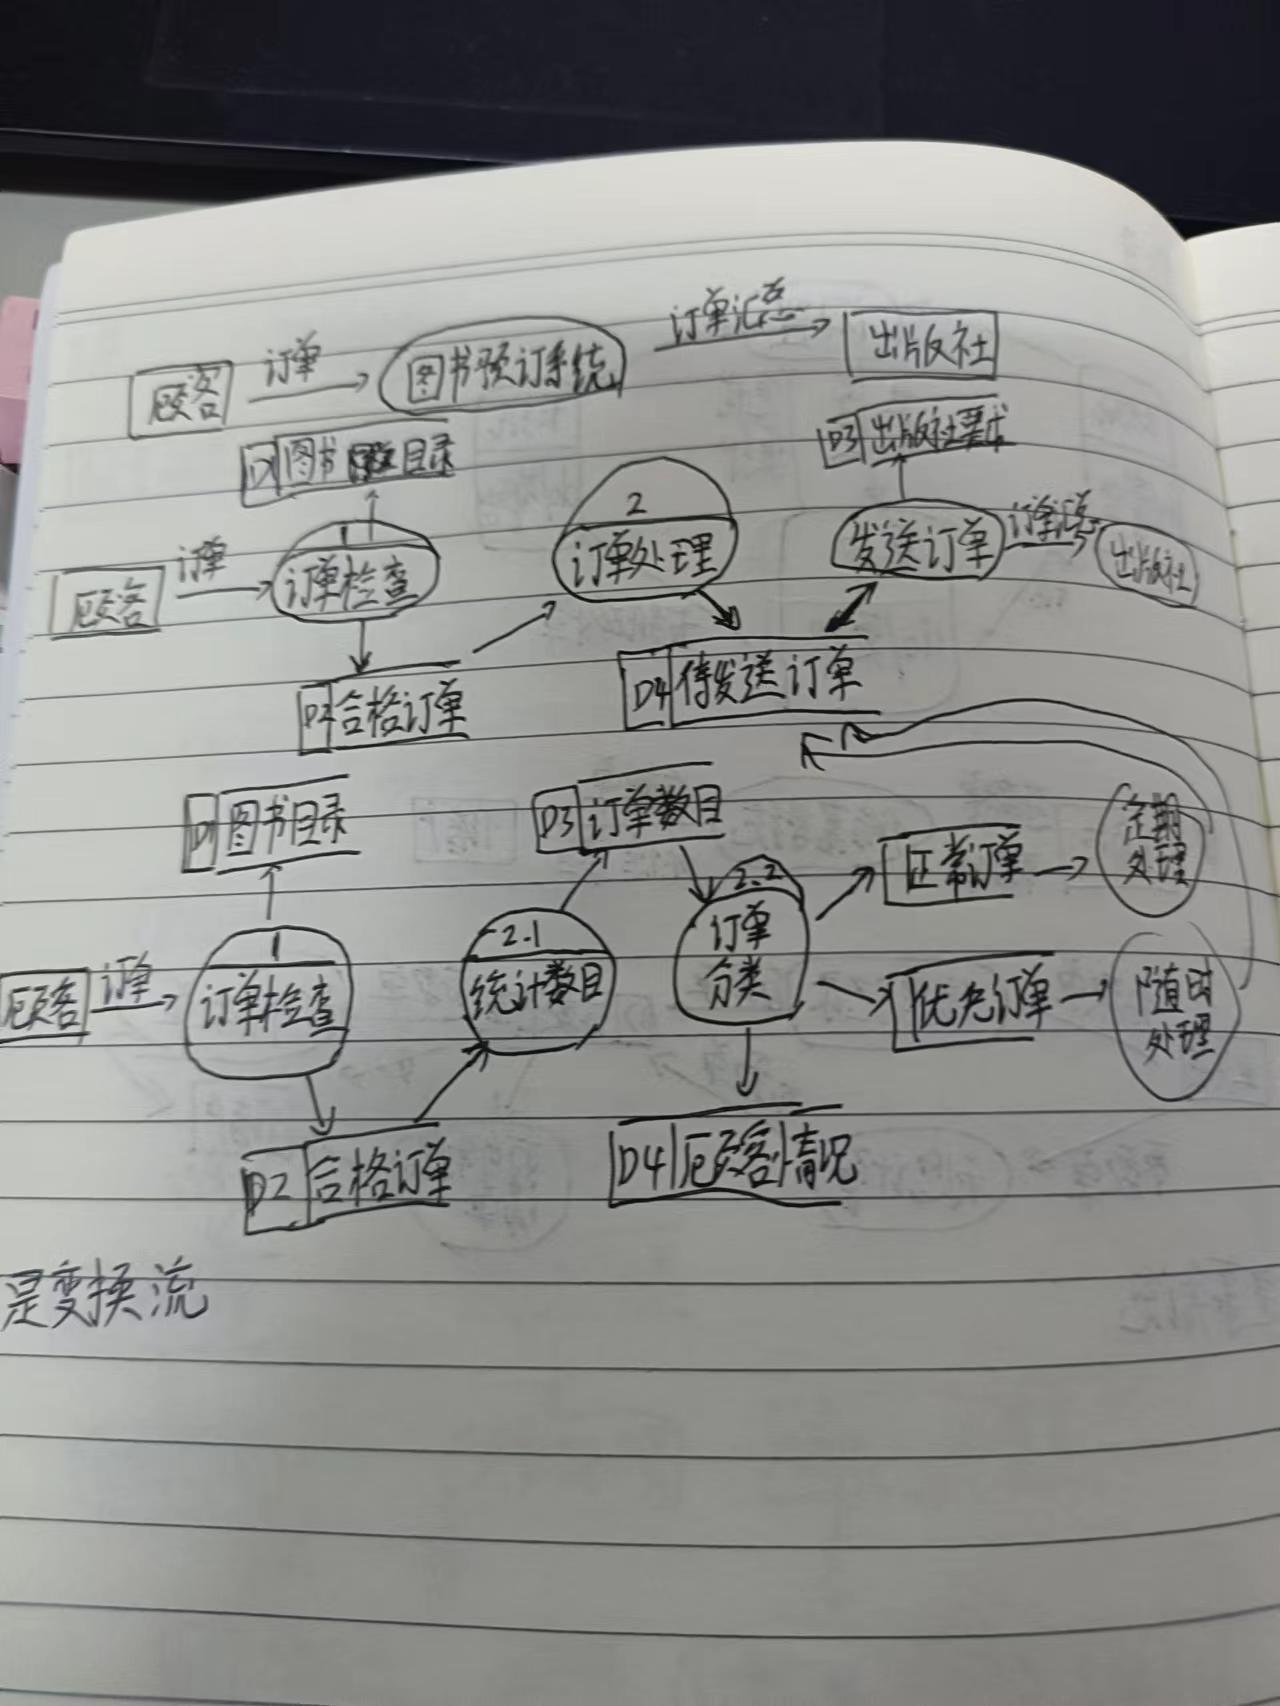 顾客 订单 图书预订系统 订单汇总 出版社
D1 图书 目录
D3 出版社要求
顾客 订单 1 订单检查
2 订单处理
发送订单 订单汇总 出版社
D2 合格订单
D4 待发送订单
D1 图书目录
D3 订单数目
正常订单 定期处理
顾客 订单 1 订单检查
2.1 统计数目
2.2 订单分类
优先订单 随时处理
D2 合格订单
D4 顾客情况
是变换流